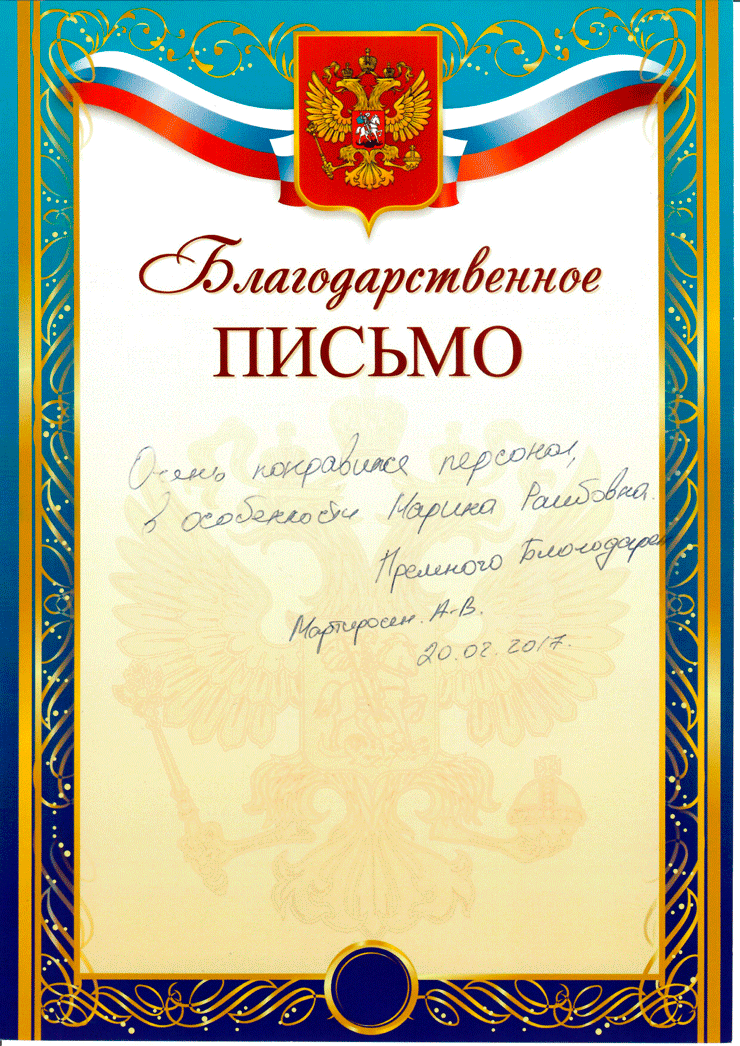 Благодарственное
ПИСЬМО
Очень понравился персонал,
в особенности Марина
Премного Благодарен
Мартиросян. А.В.
20.02.2017.